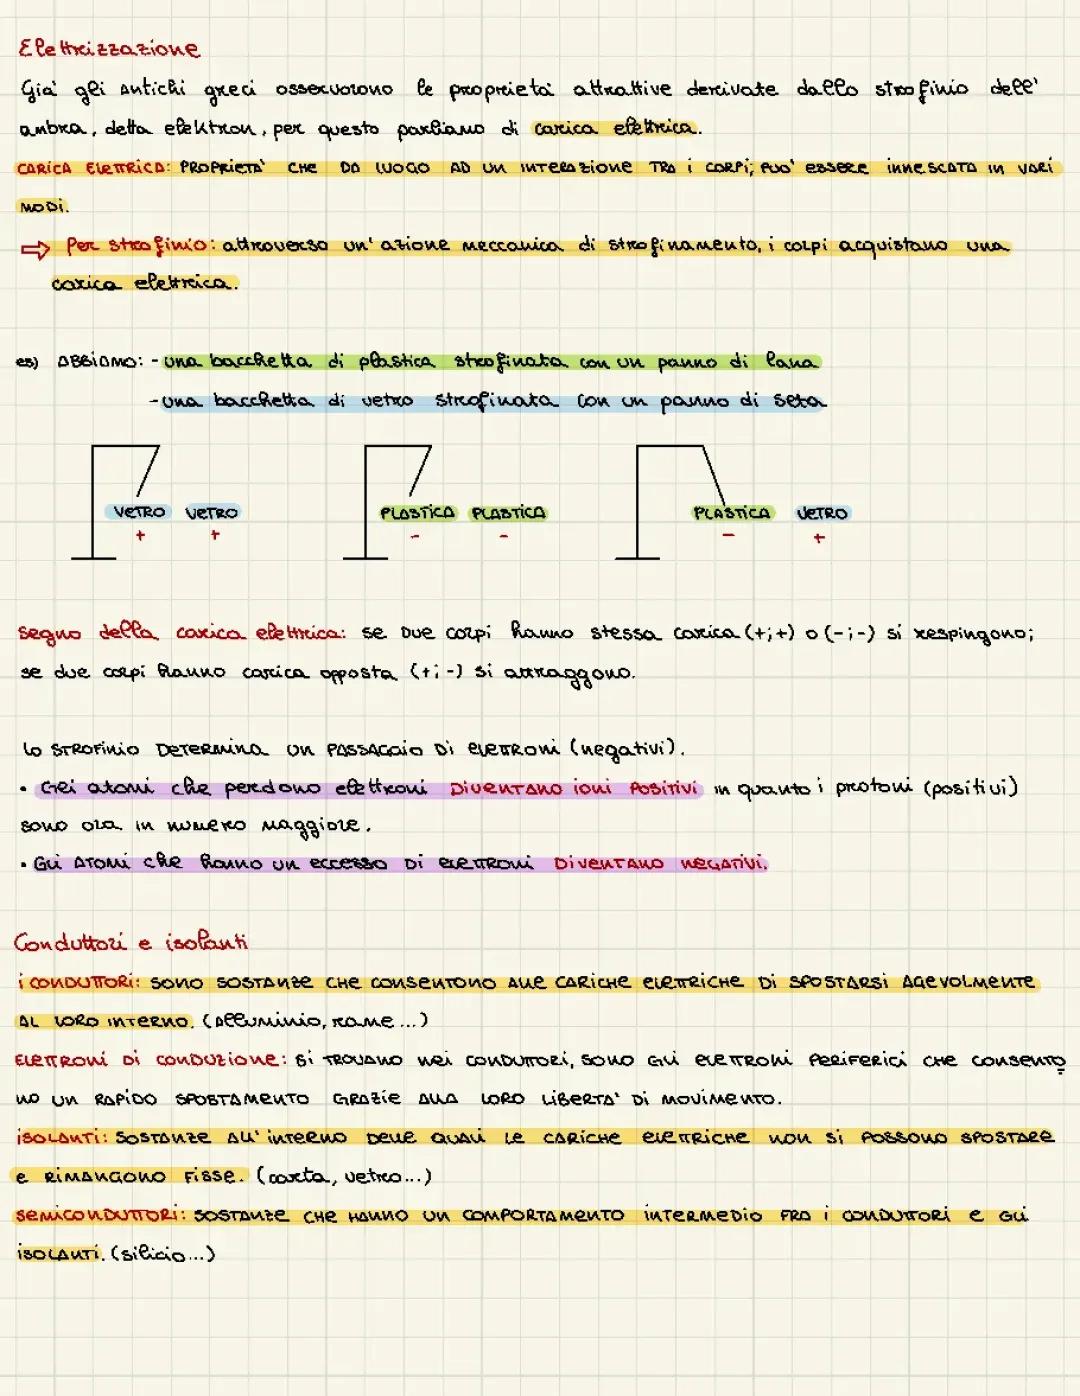 Elettrizzazione
Gia' gli antichi greci osservarono le proprieta' attrattive derivate dallo strofinio dell'
ambra, detta elektron, per questo parliamo di carica elettrica.
CARICA ELETTRICA: PROPRIETA' CHE DA LUOGO AD UN INTERAZIONE TRA i CORPI; PUO' ESSERE INNESCATA IN VARI
MODI.
⇨ Per strofinio: attraverso un'azione meccanica di strofinamento, i corpi acquistano una
carica elettrica.
es) ABBIAMO: - una bacchetta di plastica strofinata con un panno di lana
- una bacchetta di vetro strofinata con un panno di seta
VETRO VETRO PLASTICA PLASTICA PLASTICA VETRO
+ + - - - +
segno della carica elettrica: se due corpi hanno stessa carica (+;+) o (-;-) si respingono;
se due corpi hanno carica opposta (+;-) si attraggono.
LO STROFINIO DETERMINA UN PASSAGGIO DI ELETTRONI (negativi).
• Gli atomi che perdono elettroni DIVENTANO IONI POSITIVI in quanto i protoni (positivi)
sono ora in numero maggiore.
• GLI ATOMI che hanno un eccesso DI ELETTRONI DIVENTANO NEGATIVI.
Conduttori e isolanti
i CONDUTTORI: SONO SOSTANZE CHE CONSENTONO ALLE CARICHE ELETTRICHE DI SPOSTARSI AGEVOLMENTE
AL LORO INTERNO. (Alluminio, rame...)
ELETTRONI DI CONDUZIONE: SI TROVANO NEI CONDUTTORI, SONO GLI ELETTRONI PERIFERICI CHE CONSENTO
NO UN RAPIDO SPOSTAMENTO GRAZIE ALLA LORO LIBERTA' DI MOVIMENTO.
ISOLANTI: SOSTANZE ALL'INTERNO DELLE QUALI LE CARICHE ELETTRICHE NON SI POSSONO SPOSTARE
E RIMANGONO FISSE. (carta, vetro...)
SEMICONDUTTORI: SOSTANZE CHE HANNO UN COMPORTAMENTO INTERMEDIO FRA i CONDUTTORI E GLI
ISOLANTI. (silicio...)